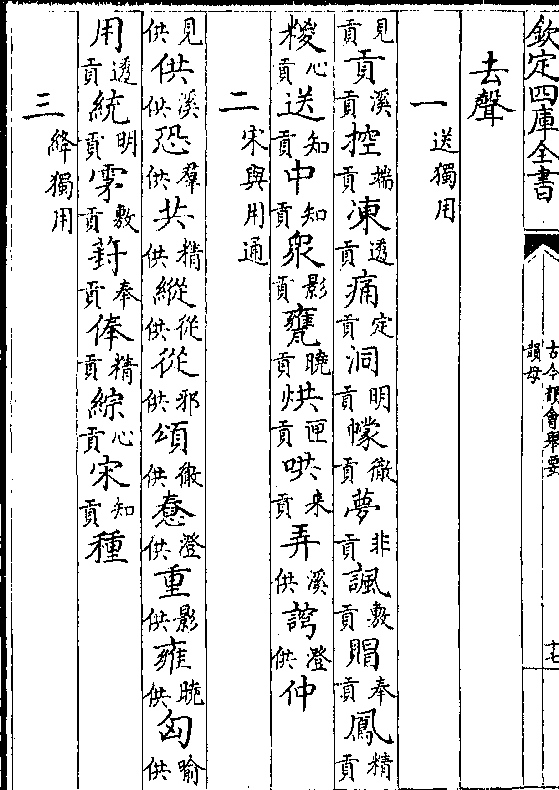 欽定四庫全書
古今韻會舉要
韻母
十七
去聲
一 送獨用
見貢貢溪貢控端貢凍透貢痛定貢洞明貢幪微貢夢非貢諷敷貢賵奉貢鳳精貢
糉心貢送知貢中知貢衆影貢甕曉貢烘匣貢哄來貢弄溪供澄供仲
二 宋與用通
見供供溪供恐羣供共精供縱從供從邪供頌徹供惷澄供重影供雍曉供匈喻供
用透貢統明貢雺敷貢葑奉貢俸精貢綜心貢宋知貢種
三 絳獨用